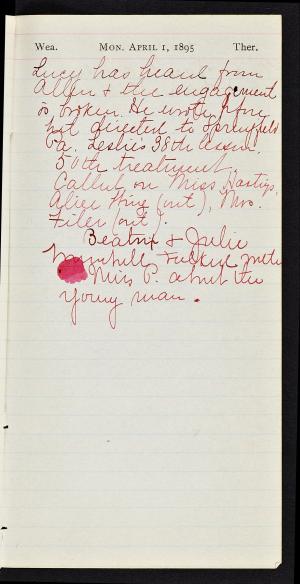 Wea. MON. APRIL 1, 1895 Ther.
Lucy has heard from
Allen & the engagement
is broken. He wrote before
but directed to Springfield
Ga. Leslie's 98th assem.
50th treatment.
Called on Miss Hastings,
Alice King (out), Mrs.
Filer (out).
Beatrix & Julie
talked with
Mrs P. about the
young man.